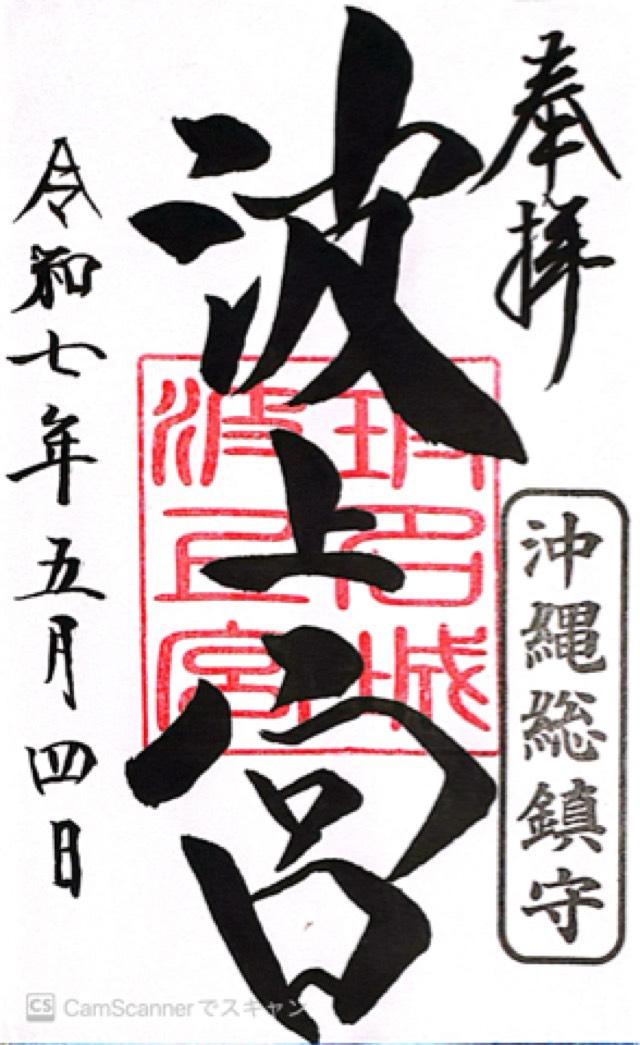 奉拝
沖縄総鎮守
波上宮
令和七年五月四日
CS CamScannerでスキャン